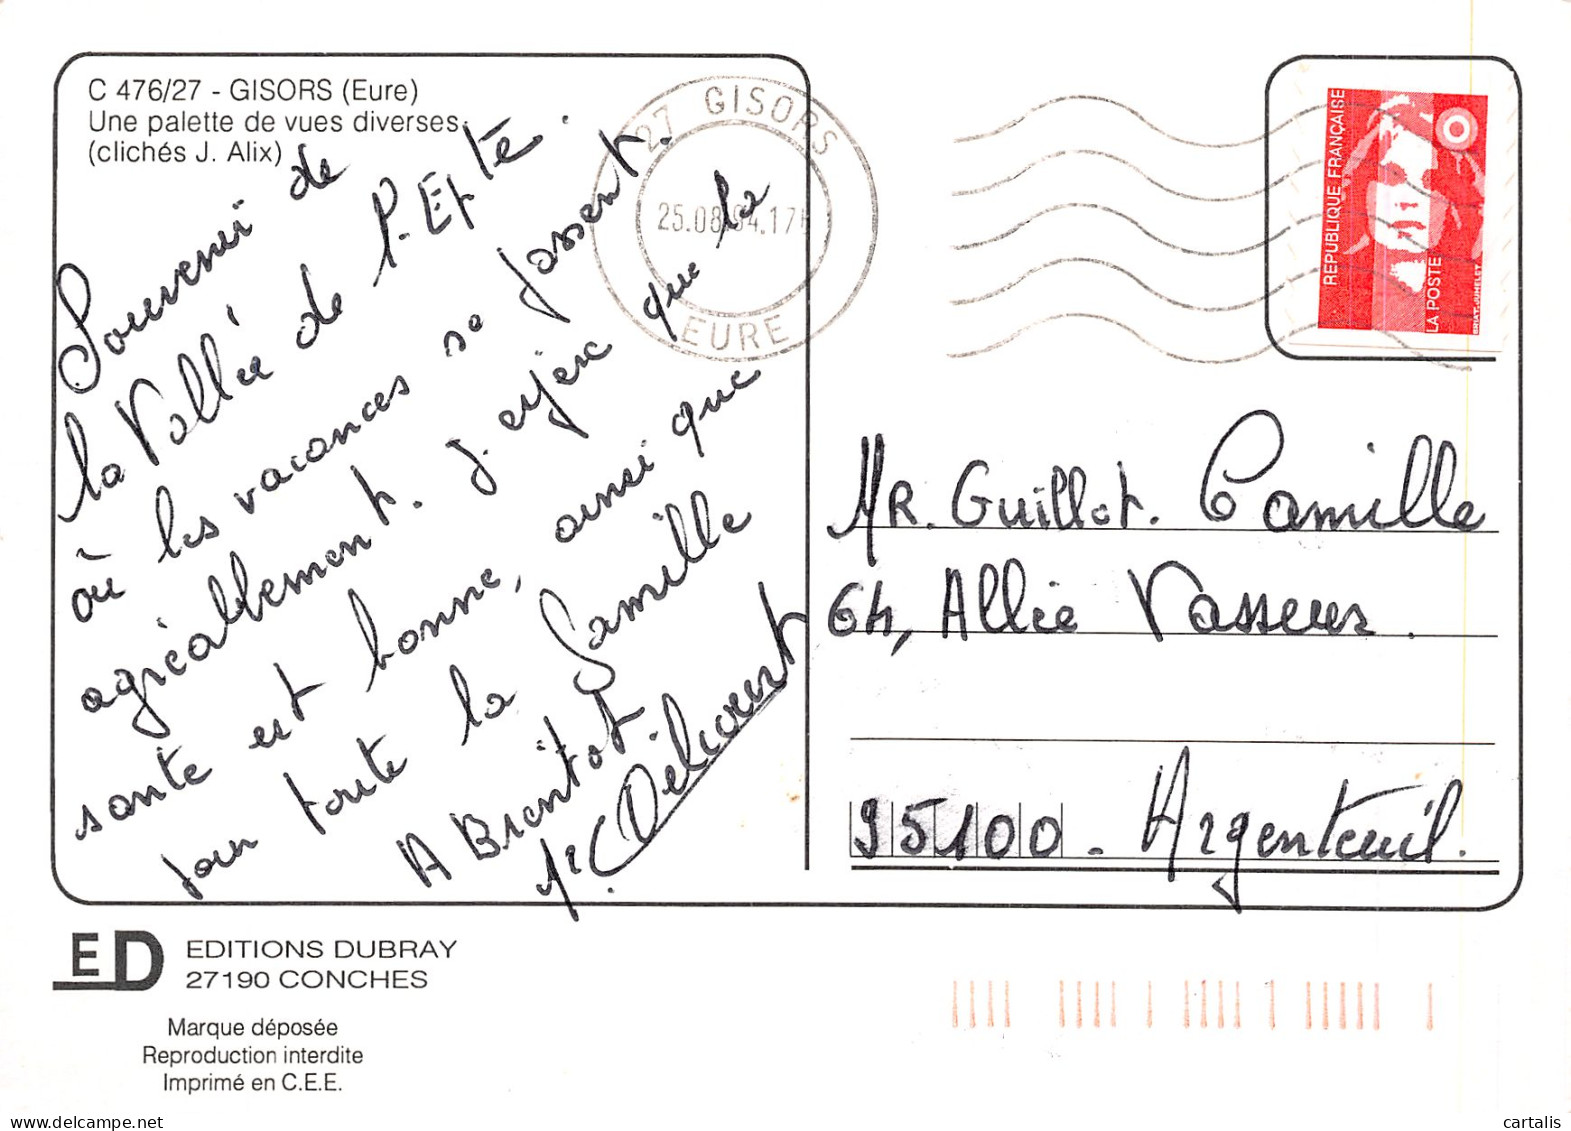 C 476/27 - GISORS (Eure)
Une palette de vues diverses.
(clichés J. Alix)
Souvenir de
la Vallée de l'Epte.
où les vacances se passent
agréablement. J'espère que la
santé est bonne, ainsi que
pour toute la famille
A Brentot.
Mr. Delcourt
27 GISORS
25.08.94.17H
EURE
REPUBLIQUE FRANÇAISE
LA POSTE
BRIAT.JUMELET
MR. Guillot. Camille
64, Allée Vasseur.
95100 - Argenteuil.
ED
EDITIONS DUBRAY
27190 CONCHES
Marque déposée
Reproduction interdite
Imprimé en C.E.E.
cartalis